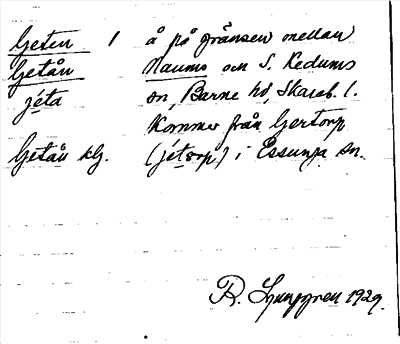 Geten 1 å på gränsen mellan
Getån Naums och S. Kedums
jéta sn, Barne hd, Skarab. l.
Kommer från Gertorp
Getån klg. (jétorp) i Essunga sn.
R. Ljunggren 1929.